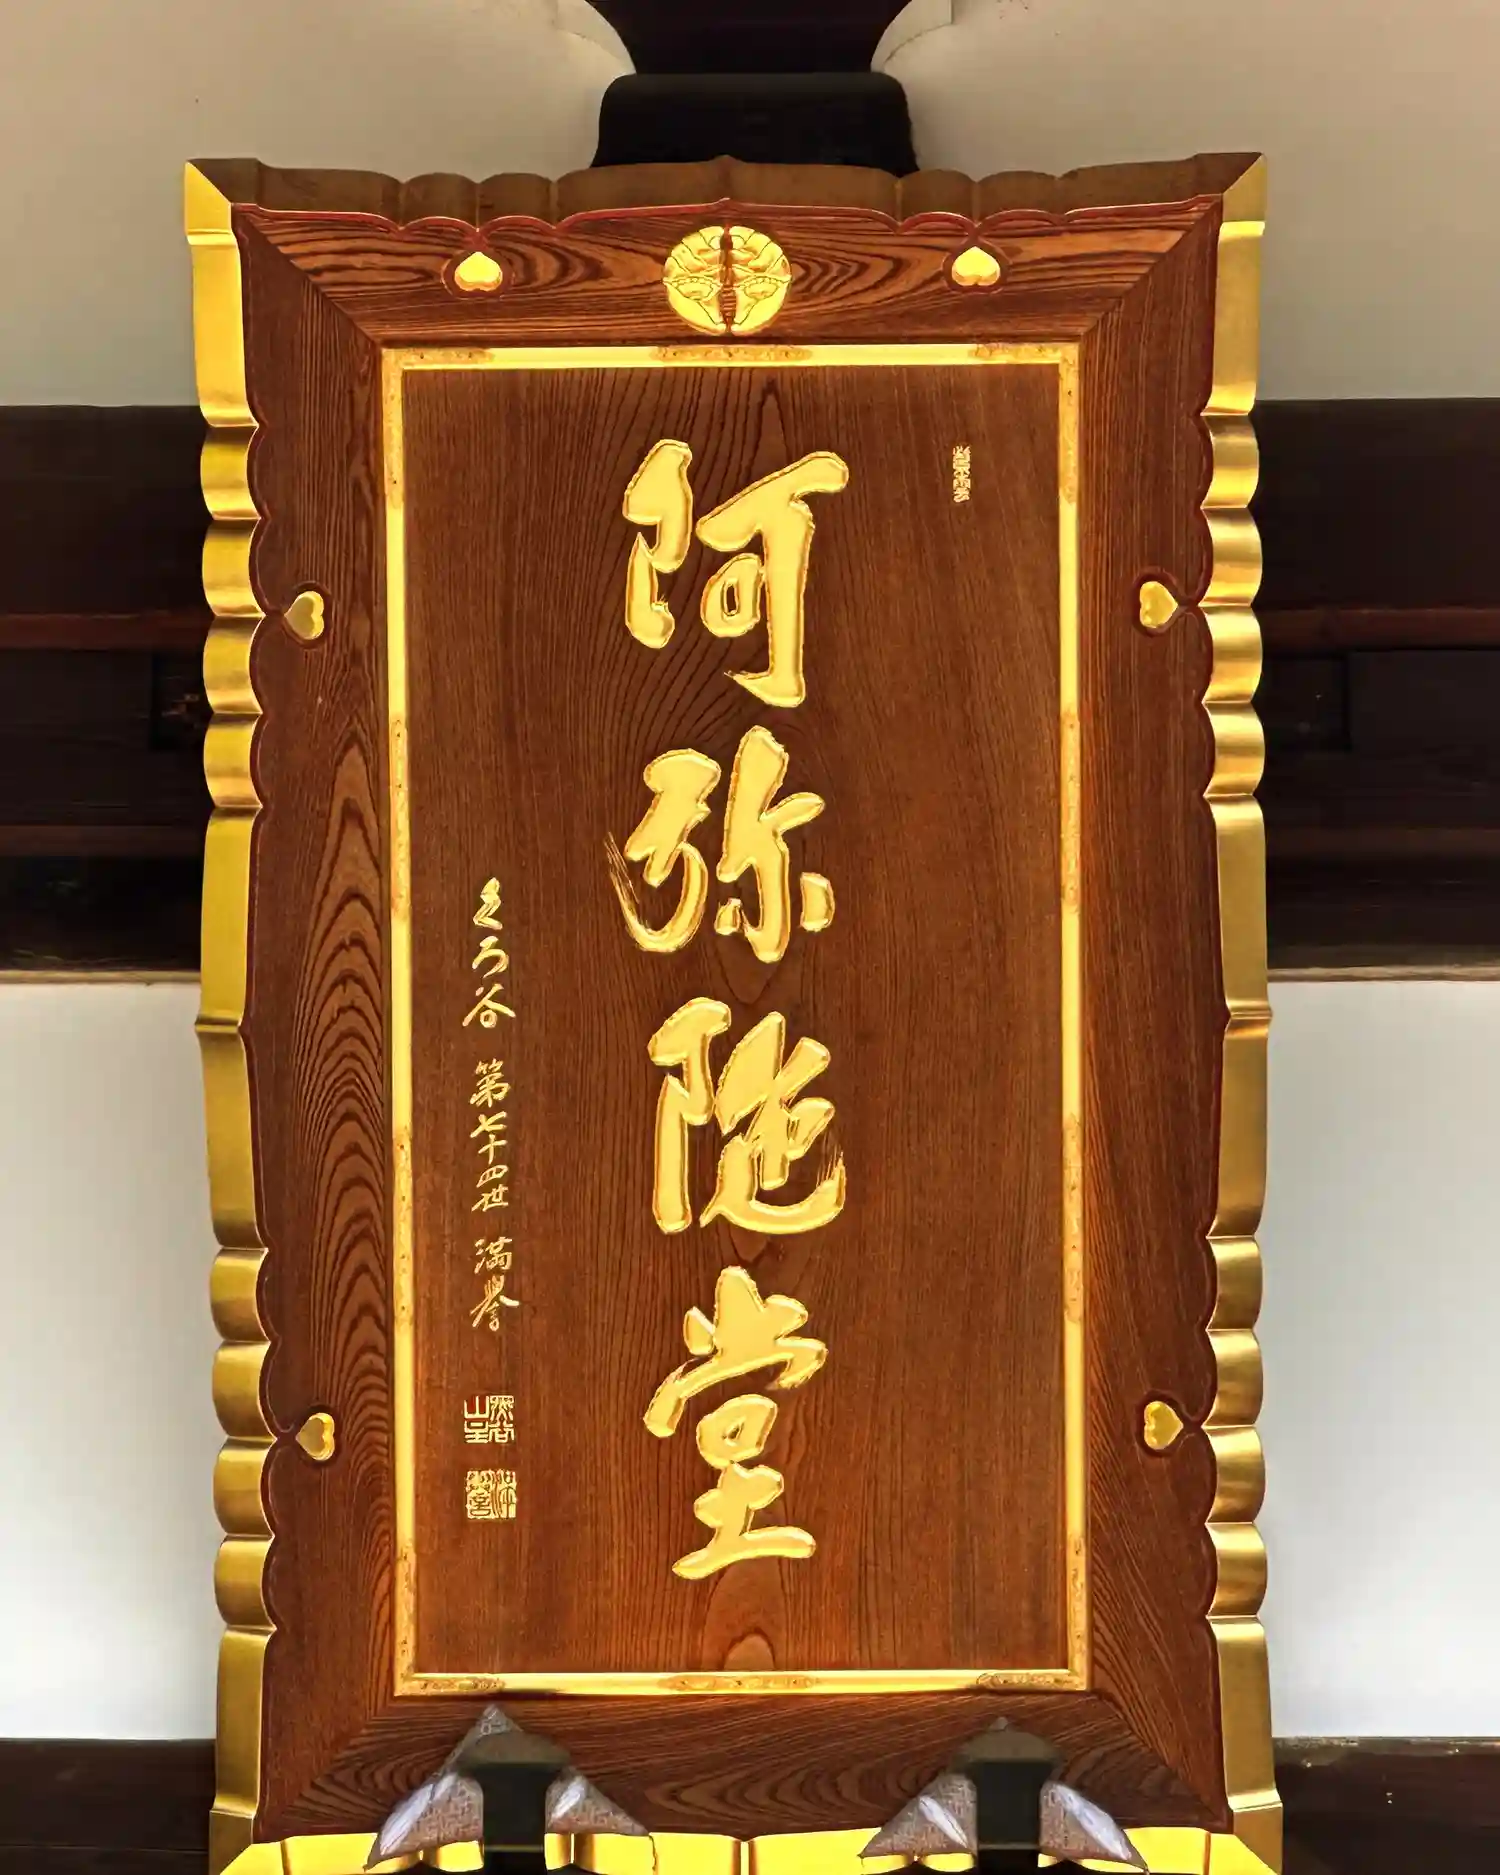 阿弥陀堂
くろ谷 第七十四世 満誉